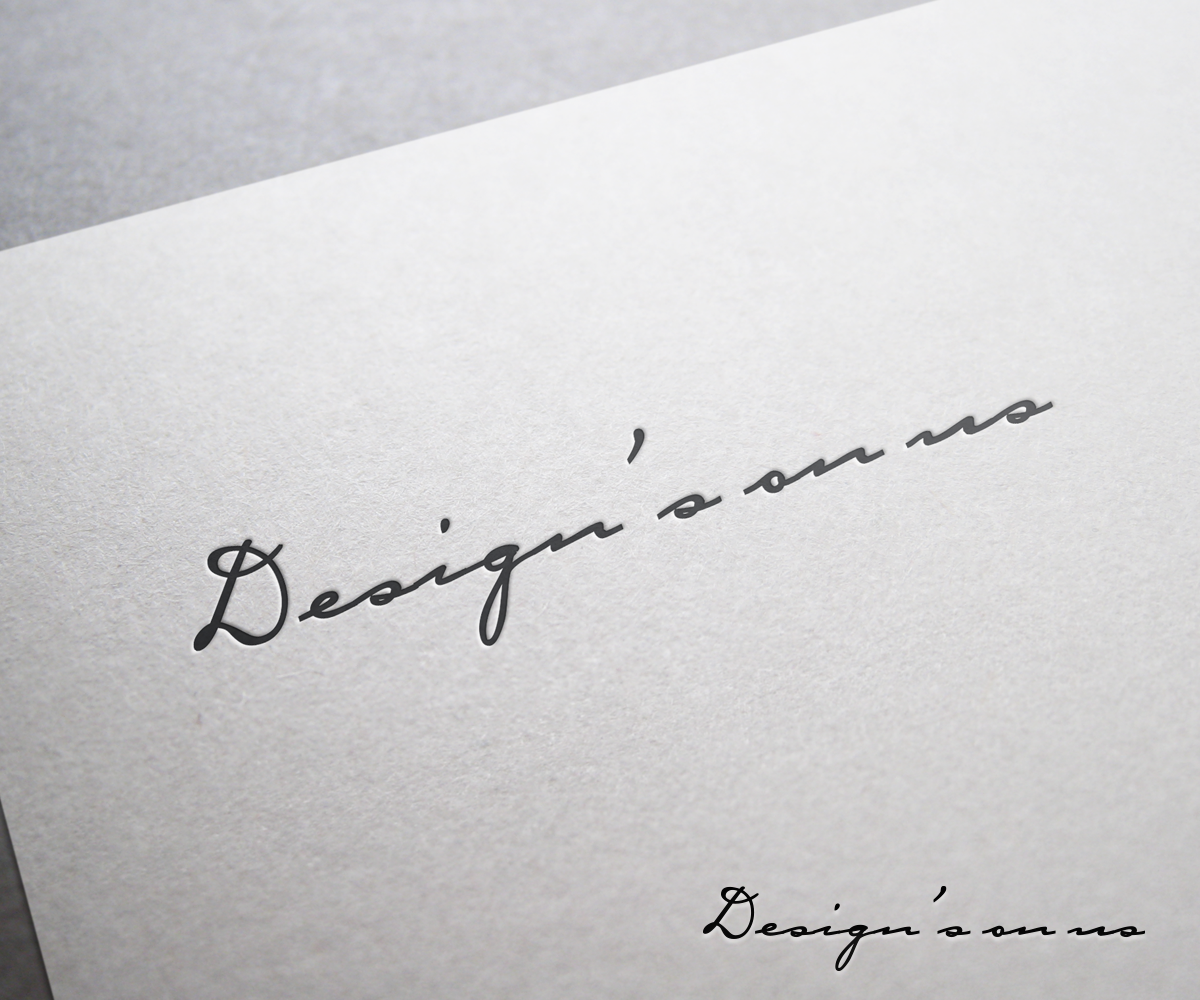 Design's on us
Design's on us